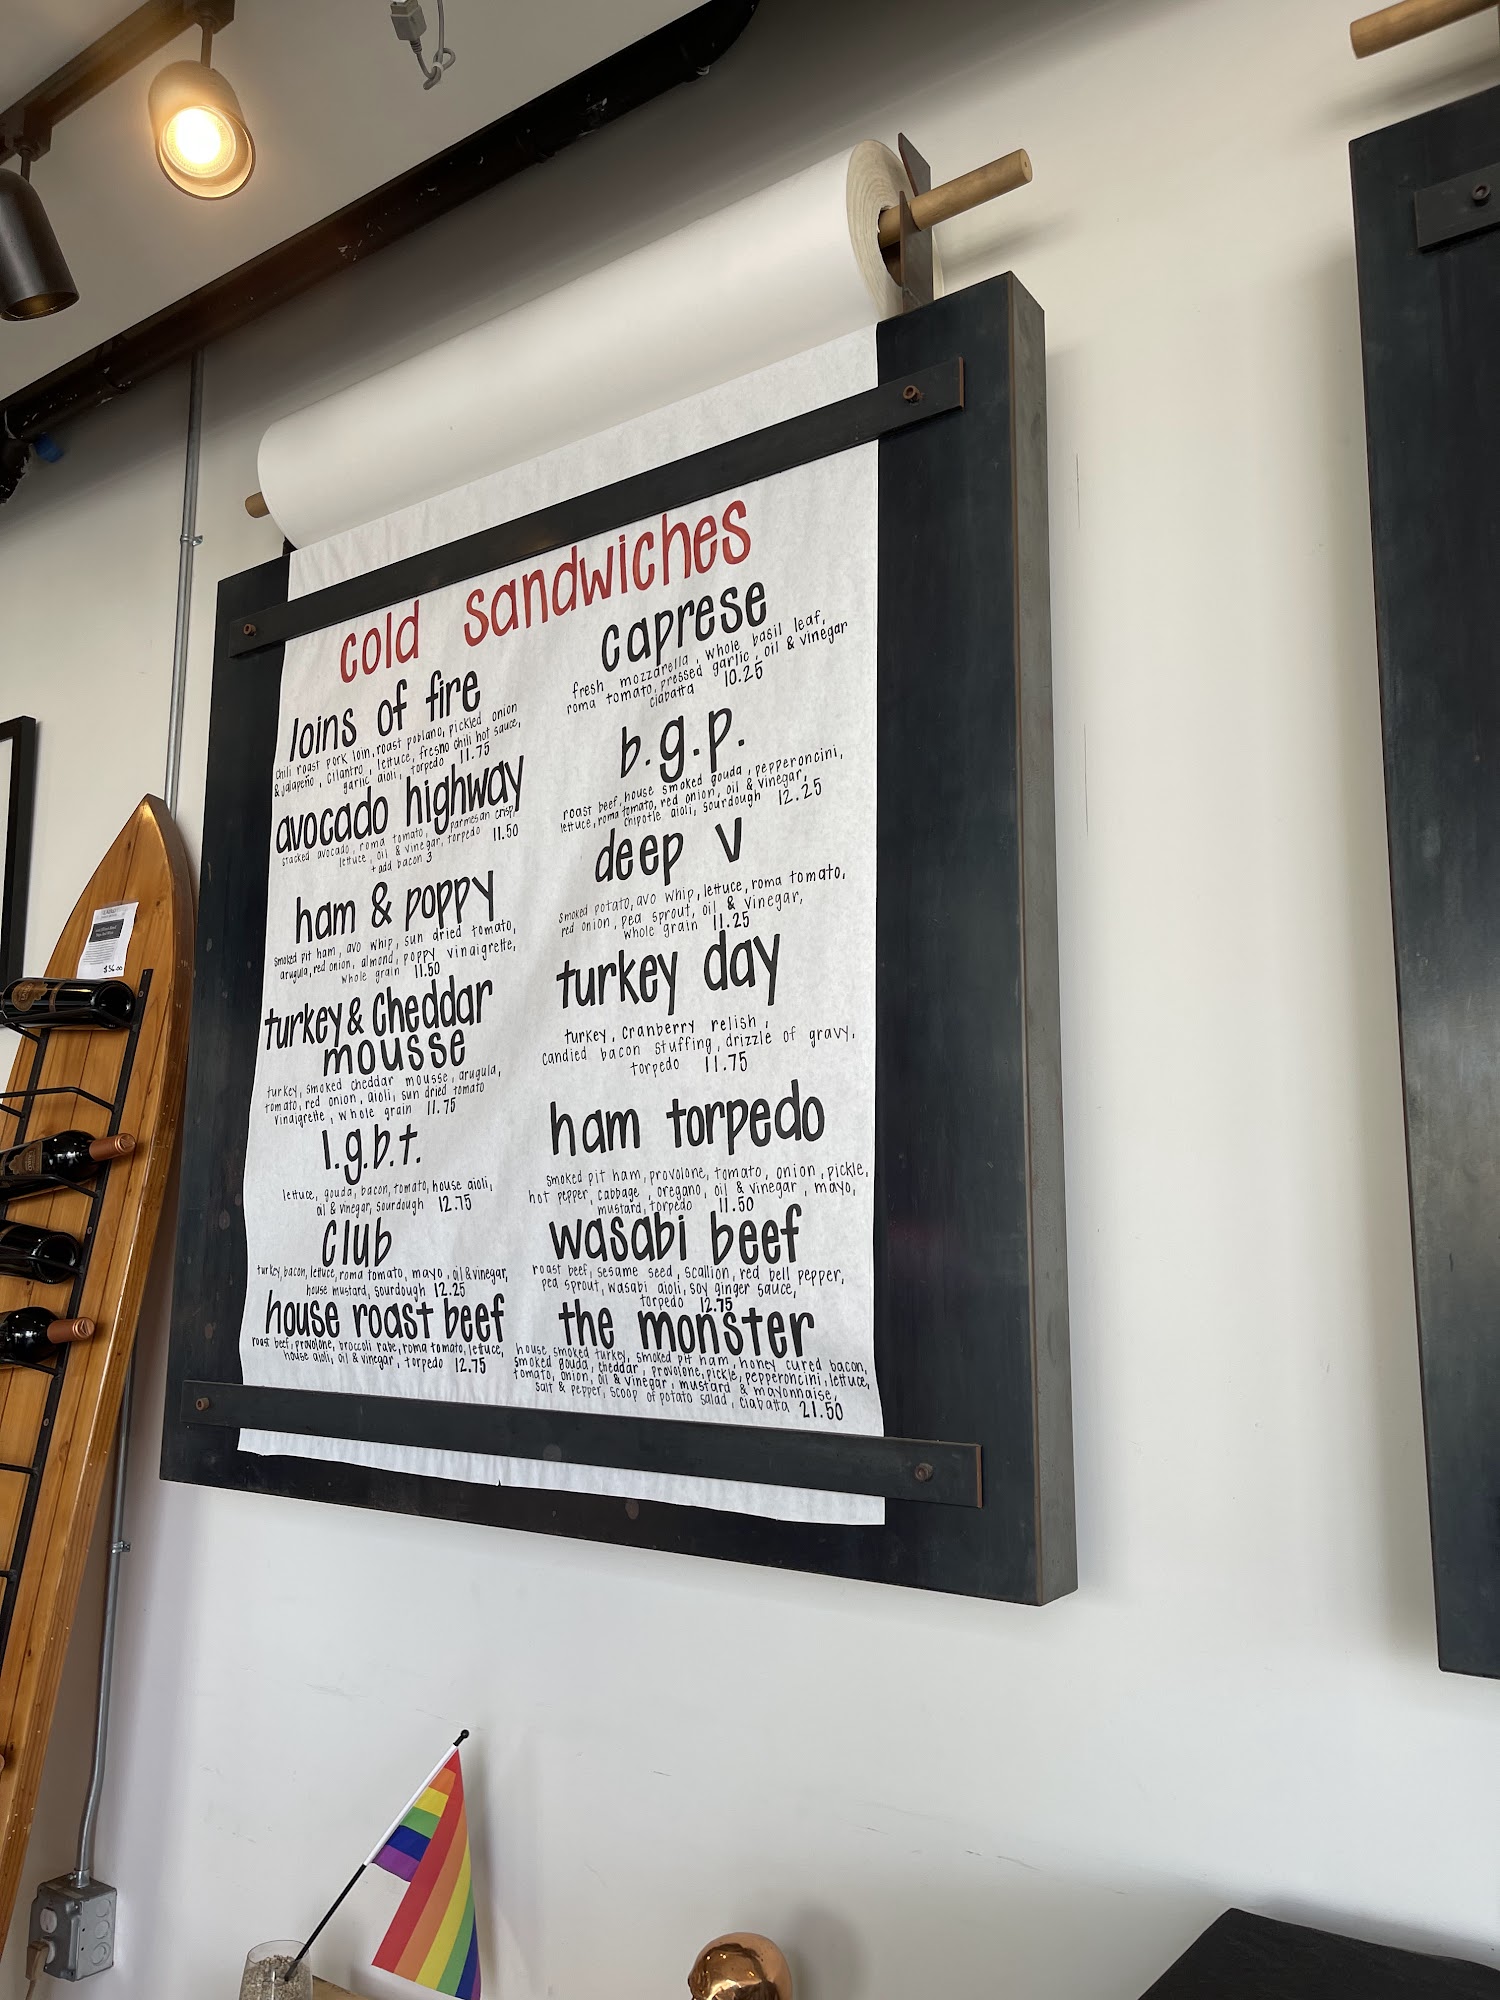 cold sandwiches
loins of fire
chili roast pork loin, roast poblano, pickled onion
& jalapeño, cilantro, lettuce, fresno chili hot sauce,
garlic aioli, torpedo 11.75
avocado highway
stacked avocado, roma tomato, parmesan crisp,
lettuce, oil & vinegar, torpedo 11.50
+ add bacon 3
ham & poppy
smoked pit ham, avo whip, sun dried tomato,
arugula, red onion, almond, poppy vinaigrette,
whole grain 11.50
turkey & cheddar
mousse
turkey, smoked cheddar mousse, arugula,
tomato, red onion, aioli, sun dried tomato
vinaigrette, whole grain 11.75
l.g.b.t.
lettuce, gouda, bacon, tomato, house aioli,
oil & vinegar, sourdough 12.75
club
turkey, bacon, lettuce, roma tomato, mayo, oil & vinegar,
house mustard, sourdough 12.25
house roast beef
roast beef, provolone, broccoli rabe, roma tomato, lettuce,
house aioli, oil & vinegar, torpedo 12.75
caprese
fresh mozzarella, whole basil leaf,
roma tomato, pressed garlic, oil & vinegar
ciabatta 10.25
b.g.p.
roast beef, house smoked gouda, pepperoncini,
lettuce, roma tomato, red onion, oil & vinegar,
chipotle aioli, sourdough 12.25
deep v
smoked potato, avo whip, lettuce, roma tomato,
red onion, pea sprout, oil & vinegar,
whole grain 11.25
turkey day
turkey, cranberry relish,
candied bacon stuffing, drizzle of gravy,
torpedo 11.75
ham torpedo
smoked pit ham, provolone, tomato, onion, pickle,
hot pepper, cabbage, oregano, oil & vinegar, mayo,
mustard, torpedo 11.50
wasabi beef
roast beef, sesame seed, scallion, red bell pepper,
pea sprout, wasabi aioli, soy ginger sauce,
torpedo 12.75
the monster
house smoked turkey, smoked pit ham, honey cured bacon,
smoked gouda, cheddar, provolone, pickle, pepperoncini, lettuce,
tomato, onion, oil & vinegar, mustard & mayonnaise,
salt & pepper, scoop of potato salad, ciabatta 21.50
$36.00